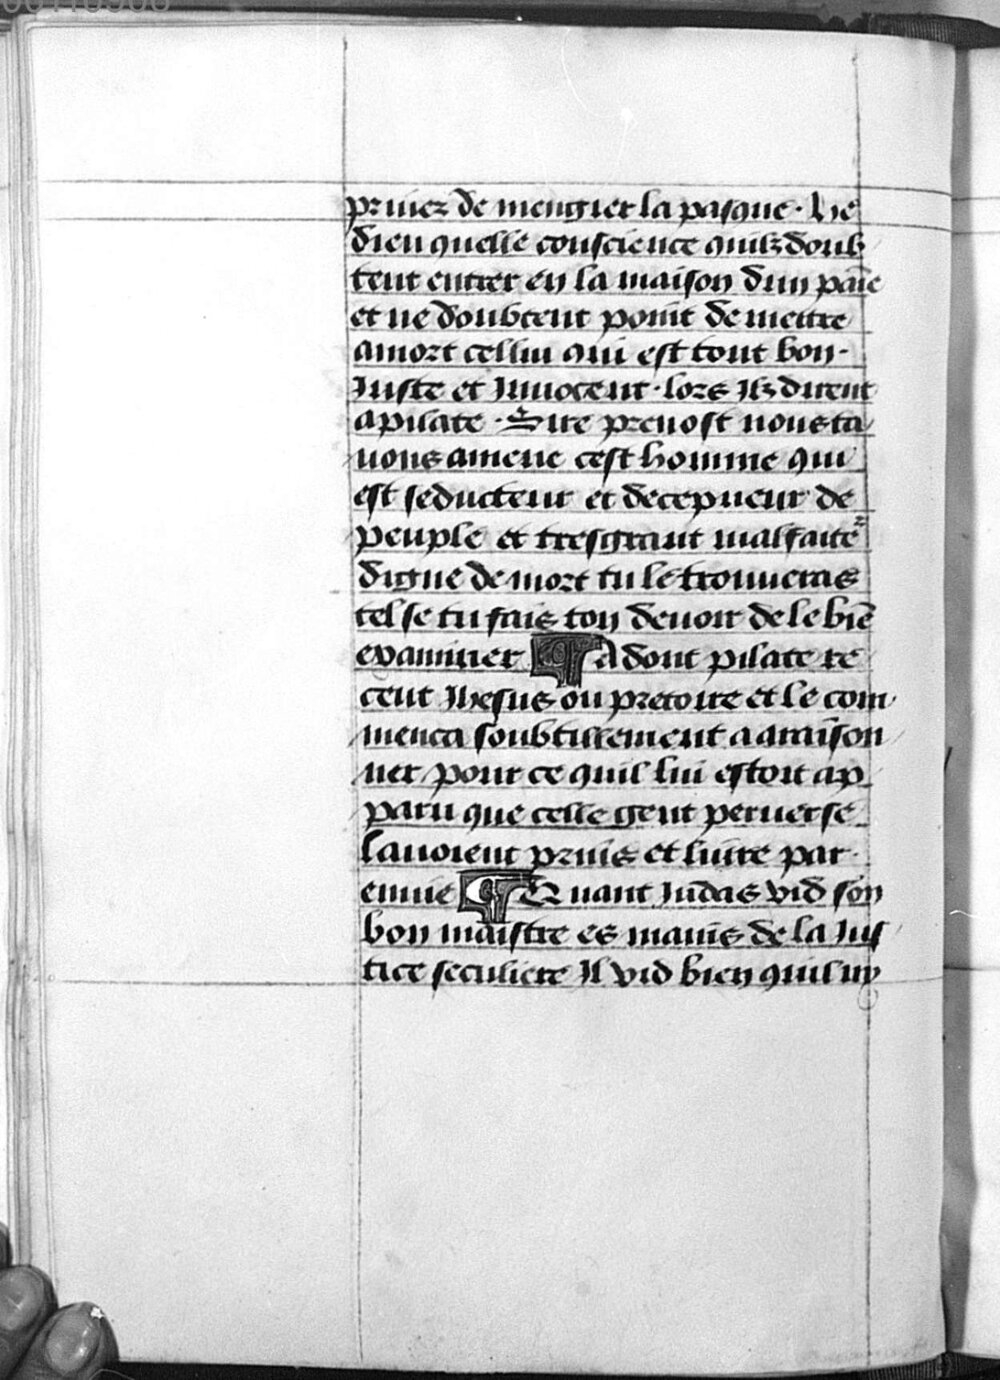 priuez de mengier la pasque · He
dieu quelle conscience quilz doub
tent entrer en la maison dun paie̅
et ne doubtent point de mettre
a mort cellui qui est tout bon ·
Iuste et Innocent · lors Ilz dirent
a pilate · Sire preuost nous ta
uons amene cest homme qui
est seducteur et decepueur de
peuple et tresgrant malfaite͛
digne de mort tu le trouueras
tel se tu fais ton deuoir de le bie̅
examiner ¶ Adont pilate re
ceut Ihesus ou pretoire et le com
menca soubtillement a araison
ner pour ce quil lui estoit ap
paru que celle gent peruerse
lauoient prins et liure par
enuie ¶ Quant Iudas vid son
bon maistre es mains de la Ius
tice seculiere Il vid bien quil ny